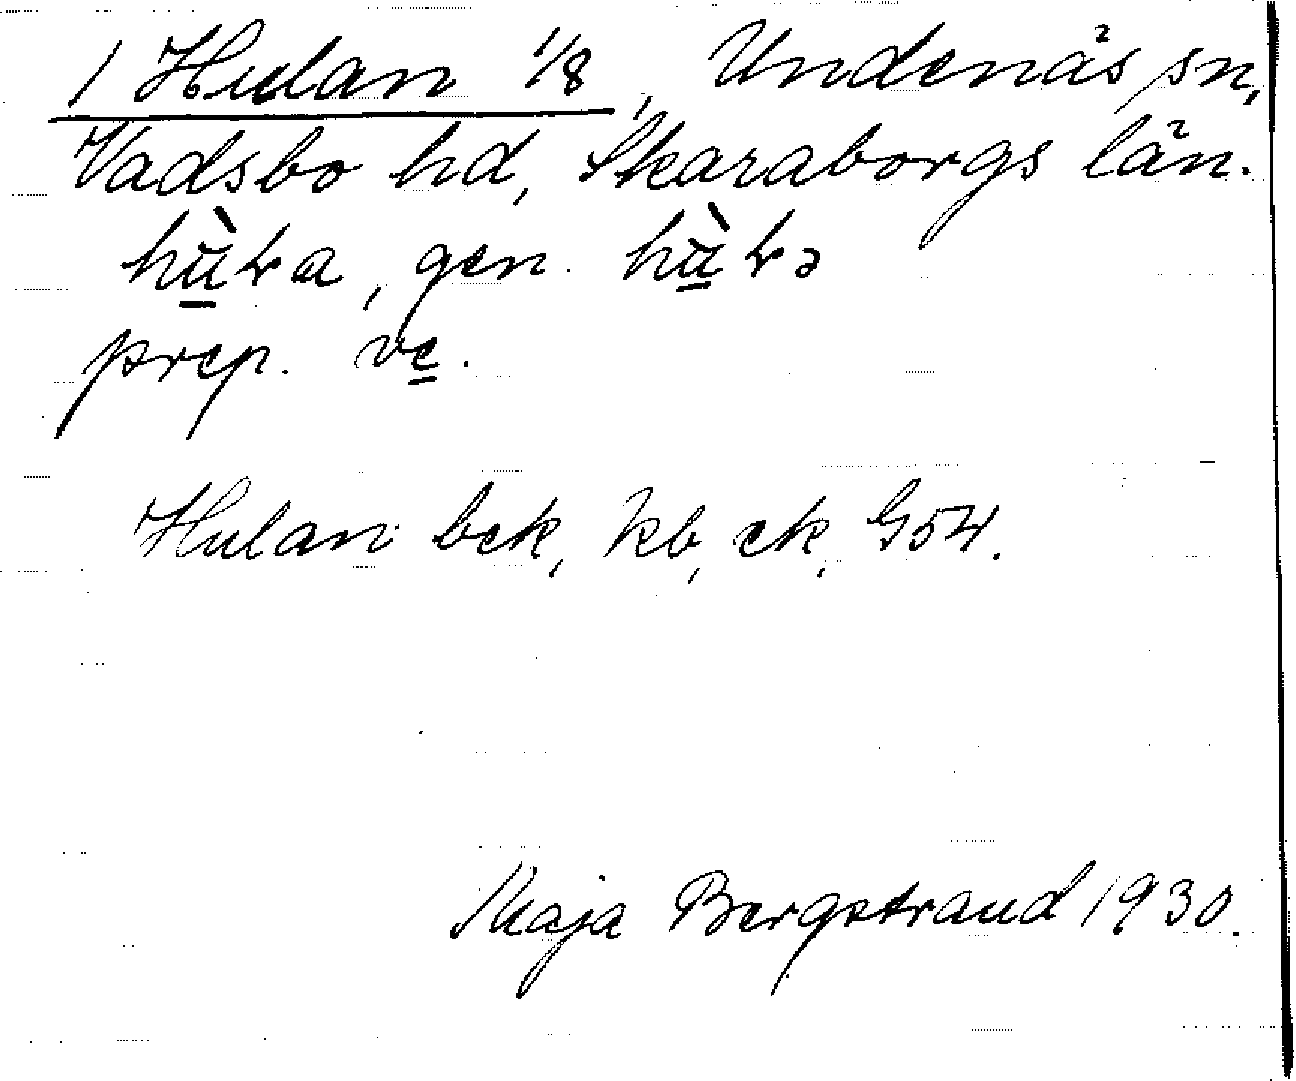 1 Hulan 1/8, Undenäs sn,
Vadsbo hd, Skaraborgs län.
hù̠ɫa, gen. hù̠ɫə
prep. ve̠.
Hulan bek, kb, ek, G54.
Maja Bergstrand 1930.